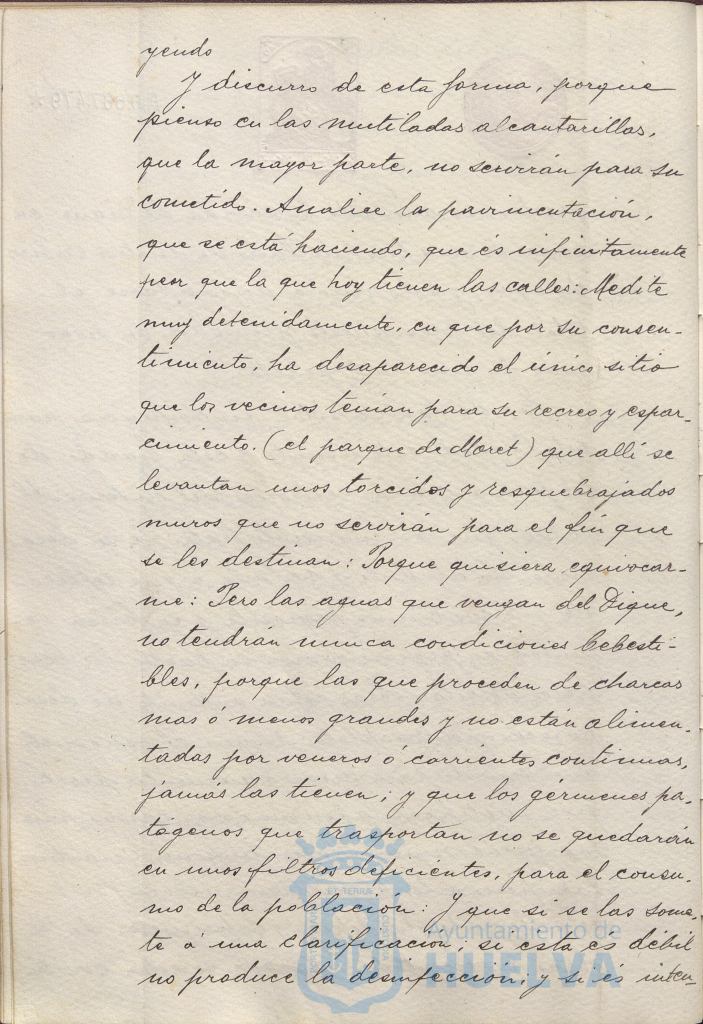 yendo
Y discurro de esta forma, porque
pienso en las mutiladas alcantarillas,
que la mayor parte, no servirán para su
cometido. Analice la pavimentación,
que se está haciendo, que és infinitamente
peor que la que hoy tienen las calles: Medite
muy detenidamente, en que por su consen-
timiento, ha desaparecido el único sitio
que los vecinos tenian para su recreo y espar-
cimiento. (el parque de Moret) que allí se
levantan unos torcidos y resquebrajados
muros que no servirán para el fin que
se les destinan: Porque quisiera equivocar-
me: Pero las aguas que vengan del Dique,
no tendrán nunca condiciones bebesti-
bles, porque las que proceden de charcas
mas ó menos grandes y no están alimen-
tadas por veneros ó corrientes continuas,
jamás las tienen; y que los gérmenes pa-
tógenos que trasportan no se quedarán
en unos filtros deficientes, para el consu-
mo de la población: Y que si se las some-
te á una clarificación; si esta és débil
no produce la desinfección; y si és inten-
Ayuntamiento de
HUELVA